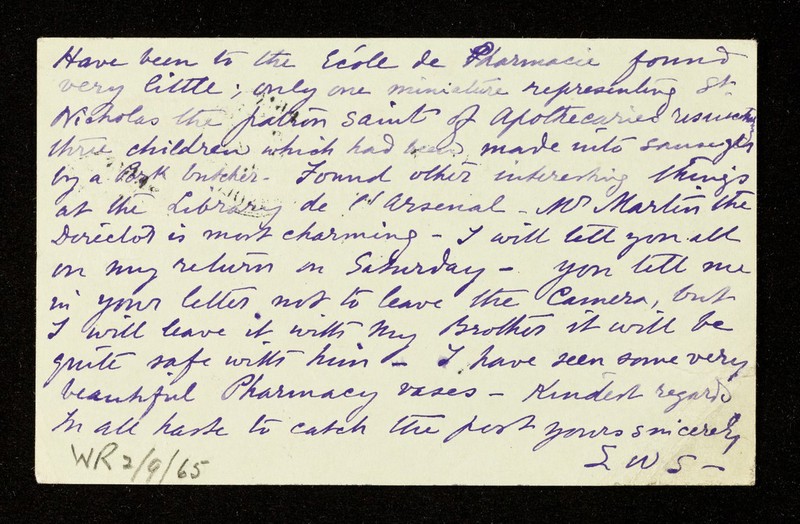 Have been to the École de Pharmacie found
very little; only one miniature representing St
Nicholas the patron Saint of Apothecaries resuscitating
three children which had been made into sausages
by a Pork butcher - Found other interesting things
at the Library de l'Arsenal - Mr Martin the
Director is most charming - I will tell you all
on my return on Saturday - you tell me
in your letter not to leave the Camera, but
I will leave it with my Brother it will be
quite safe with him - I have seen some very
beautiful Pharmacy vases - Kindest regards
In all haste to catch the post yours sincerely
WR 2/9/65
S W S -